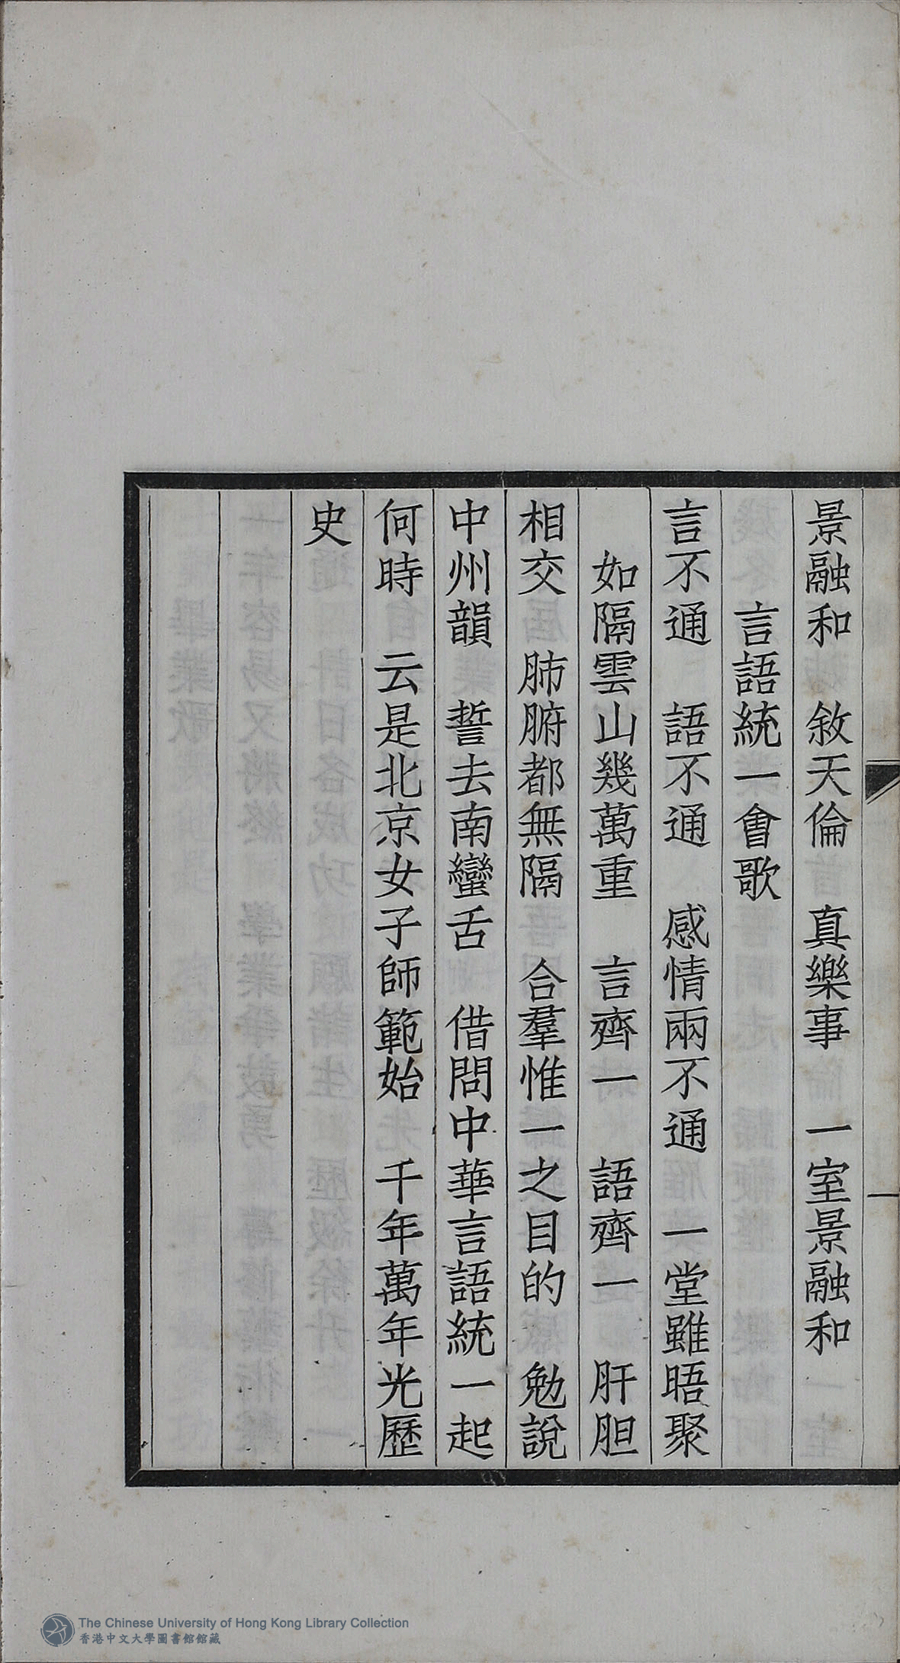 景融和　敘天倫　真樂事　一室景融和
言語統一會歌
言不通　語不通　感情兩不通　一堂雖晤聚
如隔雲山幾萬重　言齊一　語齊一　肝胆
相交　肺腑都無隔　合羣惟一之目的　勉說
中州韻　誓去南蠻舌　借問中華言語統一起
何時　云是北京女子師範始　千年萬年光歷
史
一
The Chinese University of Hong Kong Library Collection
香港中文大學圖書館館藏